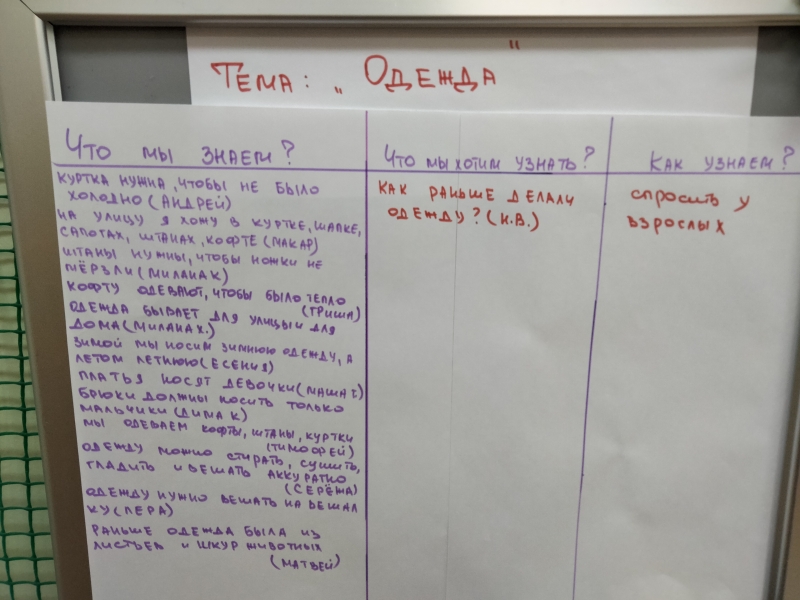 Тема: „ Одежда "
Что мы знаем?
Куртка нужна, чтобы не было
холодно (Андрей)
На улицу я хожу в куртке, шапке,
сапогах, штанах, кофте (Макар)
Штаны нужны, чтобы ножки не
мёрзли (Милана К)
Кофту одевают, чтобы было тепло
(Гриша)
Одежда бывает для улицы и для
дома (Милана Х.)
Зимой мы носим зимнюю одежду, а
летом летнюю (Есения)
Платья носят девочки (Маша Т)
Брюки должны носить только
мальчики (Дима К)
Мы одеваем кофты, штаны, куртки
(Тимофей)
Одежду можно стирать, сушить,
гладить и вешать аккуратно
(Серёжа)
Одежду нужно вешать на вешал
ку (Лера)
Раньше одежда была из
листьев и шкур животных
(Матвей)
Что мы хотим узнать?
Как раньше делали
одежду? (Н.В.)
Как узнаем?
спросить у
взрослых